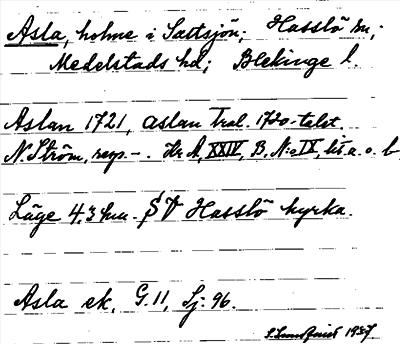 Asla, holme i Saltsjön; Hasslö sn;
Medelstads hd; Blekinge l.
Aslan 1721, aslan Tral. 1720-talet.
N. Ström, resp. -. Hr A, XXIV, B, N:o IX, lit. a. o. b
Läge 4,3 km. SV Hasslö kyrka.
Asla ek, G. 11, Sj: 96.
1937